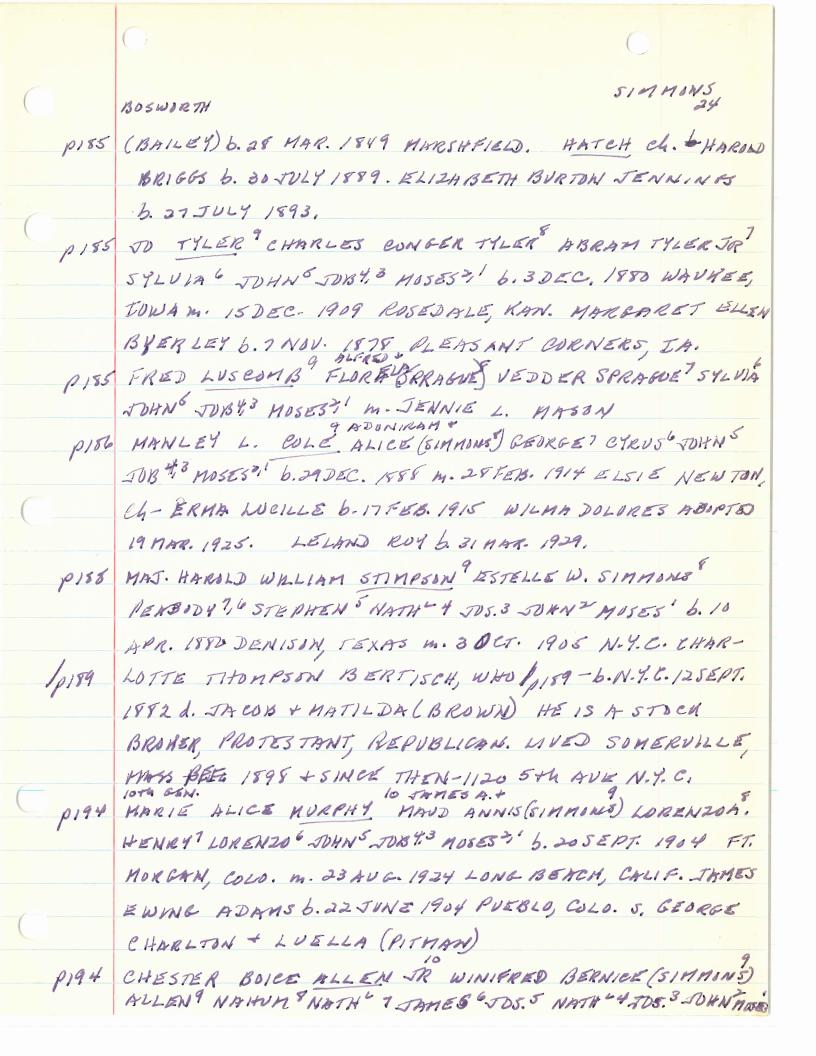 SIMMONS
24
BOSWORTH
p185 (BAILEY) b. 28 MAR. 1849 MARSHFIELD. HATCH ch. b HAROLD
BRIGGS b. 30 JULY 1889. ELIZABETH BURTON JENNINGS
b. 27 JULY 1893.
p185 JO TYLER⁹ CHARLES CONGER TYLER⁸ ABRAM TYLER JR⁷
SYLVIA⁶ JOHN⁵ JOB⁴,³ MOSES²,¹ b. 3 DEC. 1880 WAUKEE,
IOWA m. 15 DEC. 1909 ROSEDALE, KAN. MARGARET ELLEN
BYERLEY b. 7 NOV. 1878 PLEASANT CORNERS, IA.
ALFRED +
p185 FRED LUSCOMB⁹ FLORA (SPRAGUE⁸) VEDDER SPRAGUE⁷ SYLVIA⁶
JOHN⁶ JOB⁴,³ MOSES²,¹ m. JENNIE L. MASON
9 ADONIRAM +
p186 MANLEY L. COLE ALICE (SIMMONS⁸) GEORGE⁷ CYRUS⁶ JOHN⁵
JOB⁴,³ MOSES²,¹ b. 29 DEC. 1888 m. 28 FEB. 1914 ELSIE NEWTON.
ch- ERMA LUCILLE b. 17 FEB. 1915 WILMA DOLORES ADOPTED
19 MAR. 1925. LELAND ROY b. 31 MAR. 1929.
p188 MAJ. HAROLD WILLIAM STIMPSON⁹ ESTELLE W. SIMMONS⁸
PEABODY⁷,⁶ STEPHEN⁵ NATHL⁴ JOS.³ JOHN² MOSES¹ b. 10
APR. 1880 DENISON, TEXAS m. 3 OCT. 1905 N.Y.C. CHAR-
/p189 LOTTE THOMPSON BERTISCH, WHO /p189 - b. N.Y.C. 12 SEPT.
1882 d. JACOB + MATILDA (BROWN) HE IS A STOCK
BROKER, PROTESTANT, REPUBLICAN. LIVED SOMERVILLE,
MASS BEF. 1898 + SINCE THEN - 1120 5th AVE N.Y.C.
10TH GEN. 10 JAMES A. + 9
p194 MARIE ALICE MURPHY MAUD ANNIS (SIMMONS) LORENZO A.⁸
HENRY⁷ LORENZO⁶ JOHN⁵ JOB⁴,³ MOSES²,¹ b. 20 SEPT. 1904 FT.
MORGAN, COLO. m. 23 AUG. 1924 LONG BEACH, CALIF. JAMES
EWING ADAMS b. 22 JUNE 1904 PUEBLO, COLO. s. GEORGE
CHARLTON + LUELLA (PITMAN)
p194 CHESTER BOICE ALLEN JR¹⁰ WINIFRED BERNICE (SIMMONS)⁹
ALLEN⁹ NAHUM⁸ NATHL⁷ JAMES⁶ JOS.⁵ NATHL⁴ JOS.³ JOHN² MOSES¹